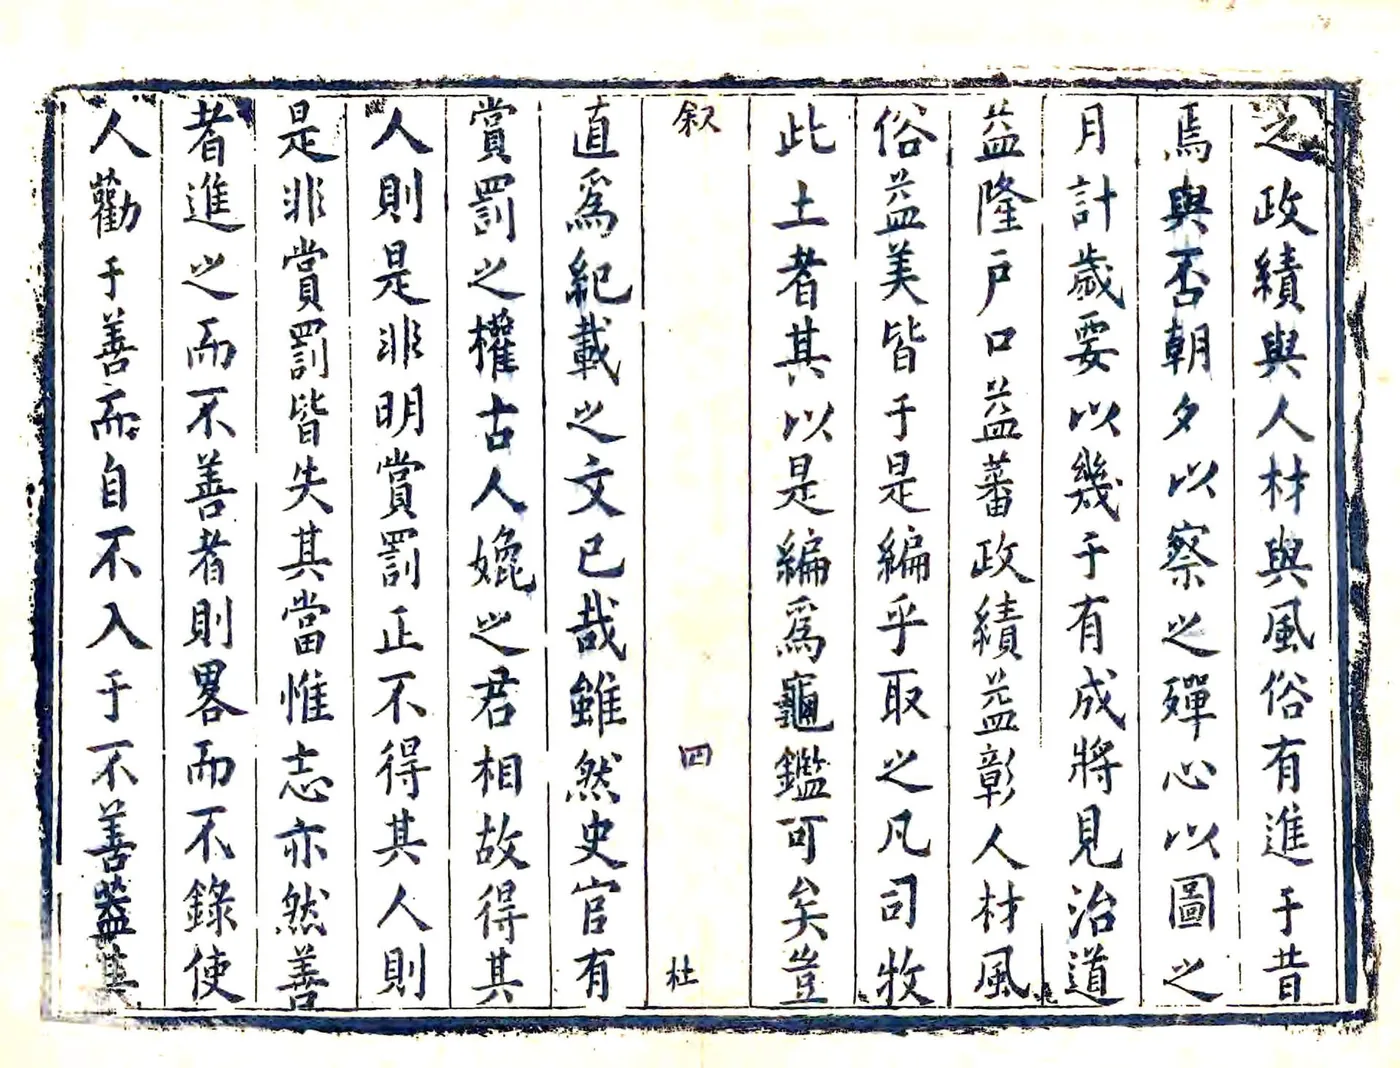 之政績與人材與風俗有進于昔
焉與否朝夕以察之殫心以圖之
月計歲要以幾于有成將見治道
益隆戶口益蕃政績益彰人材風
俗益美皆于是編乎取之凡司牧
此土者其以是編爲龜鑑可矣豈
叙
四
杜
直爲紀載之文已哉雖然史官有
賞罰之權古人媲之君相故得其
人則是非明賞罰正不得其人則
是非賞罰皆失其當惟志亦然善
者進之而不善者則畧而不錄使
人勸于善而自不入于不善葢其